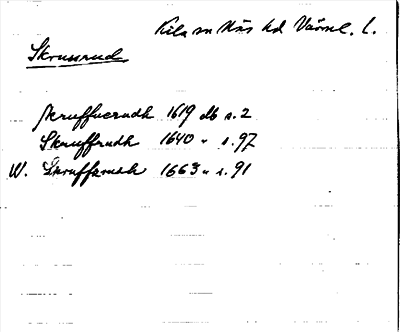 Kila sn Näs hd Värml. l.
Skruvrud
Skruffuerudh 1619 db s. 2
Skruffrudh 1640 " s. 97
W. Skruffzrudh 1663 " s. 91